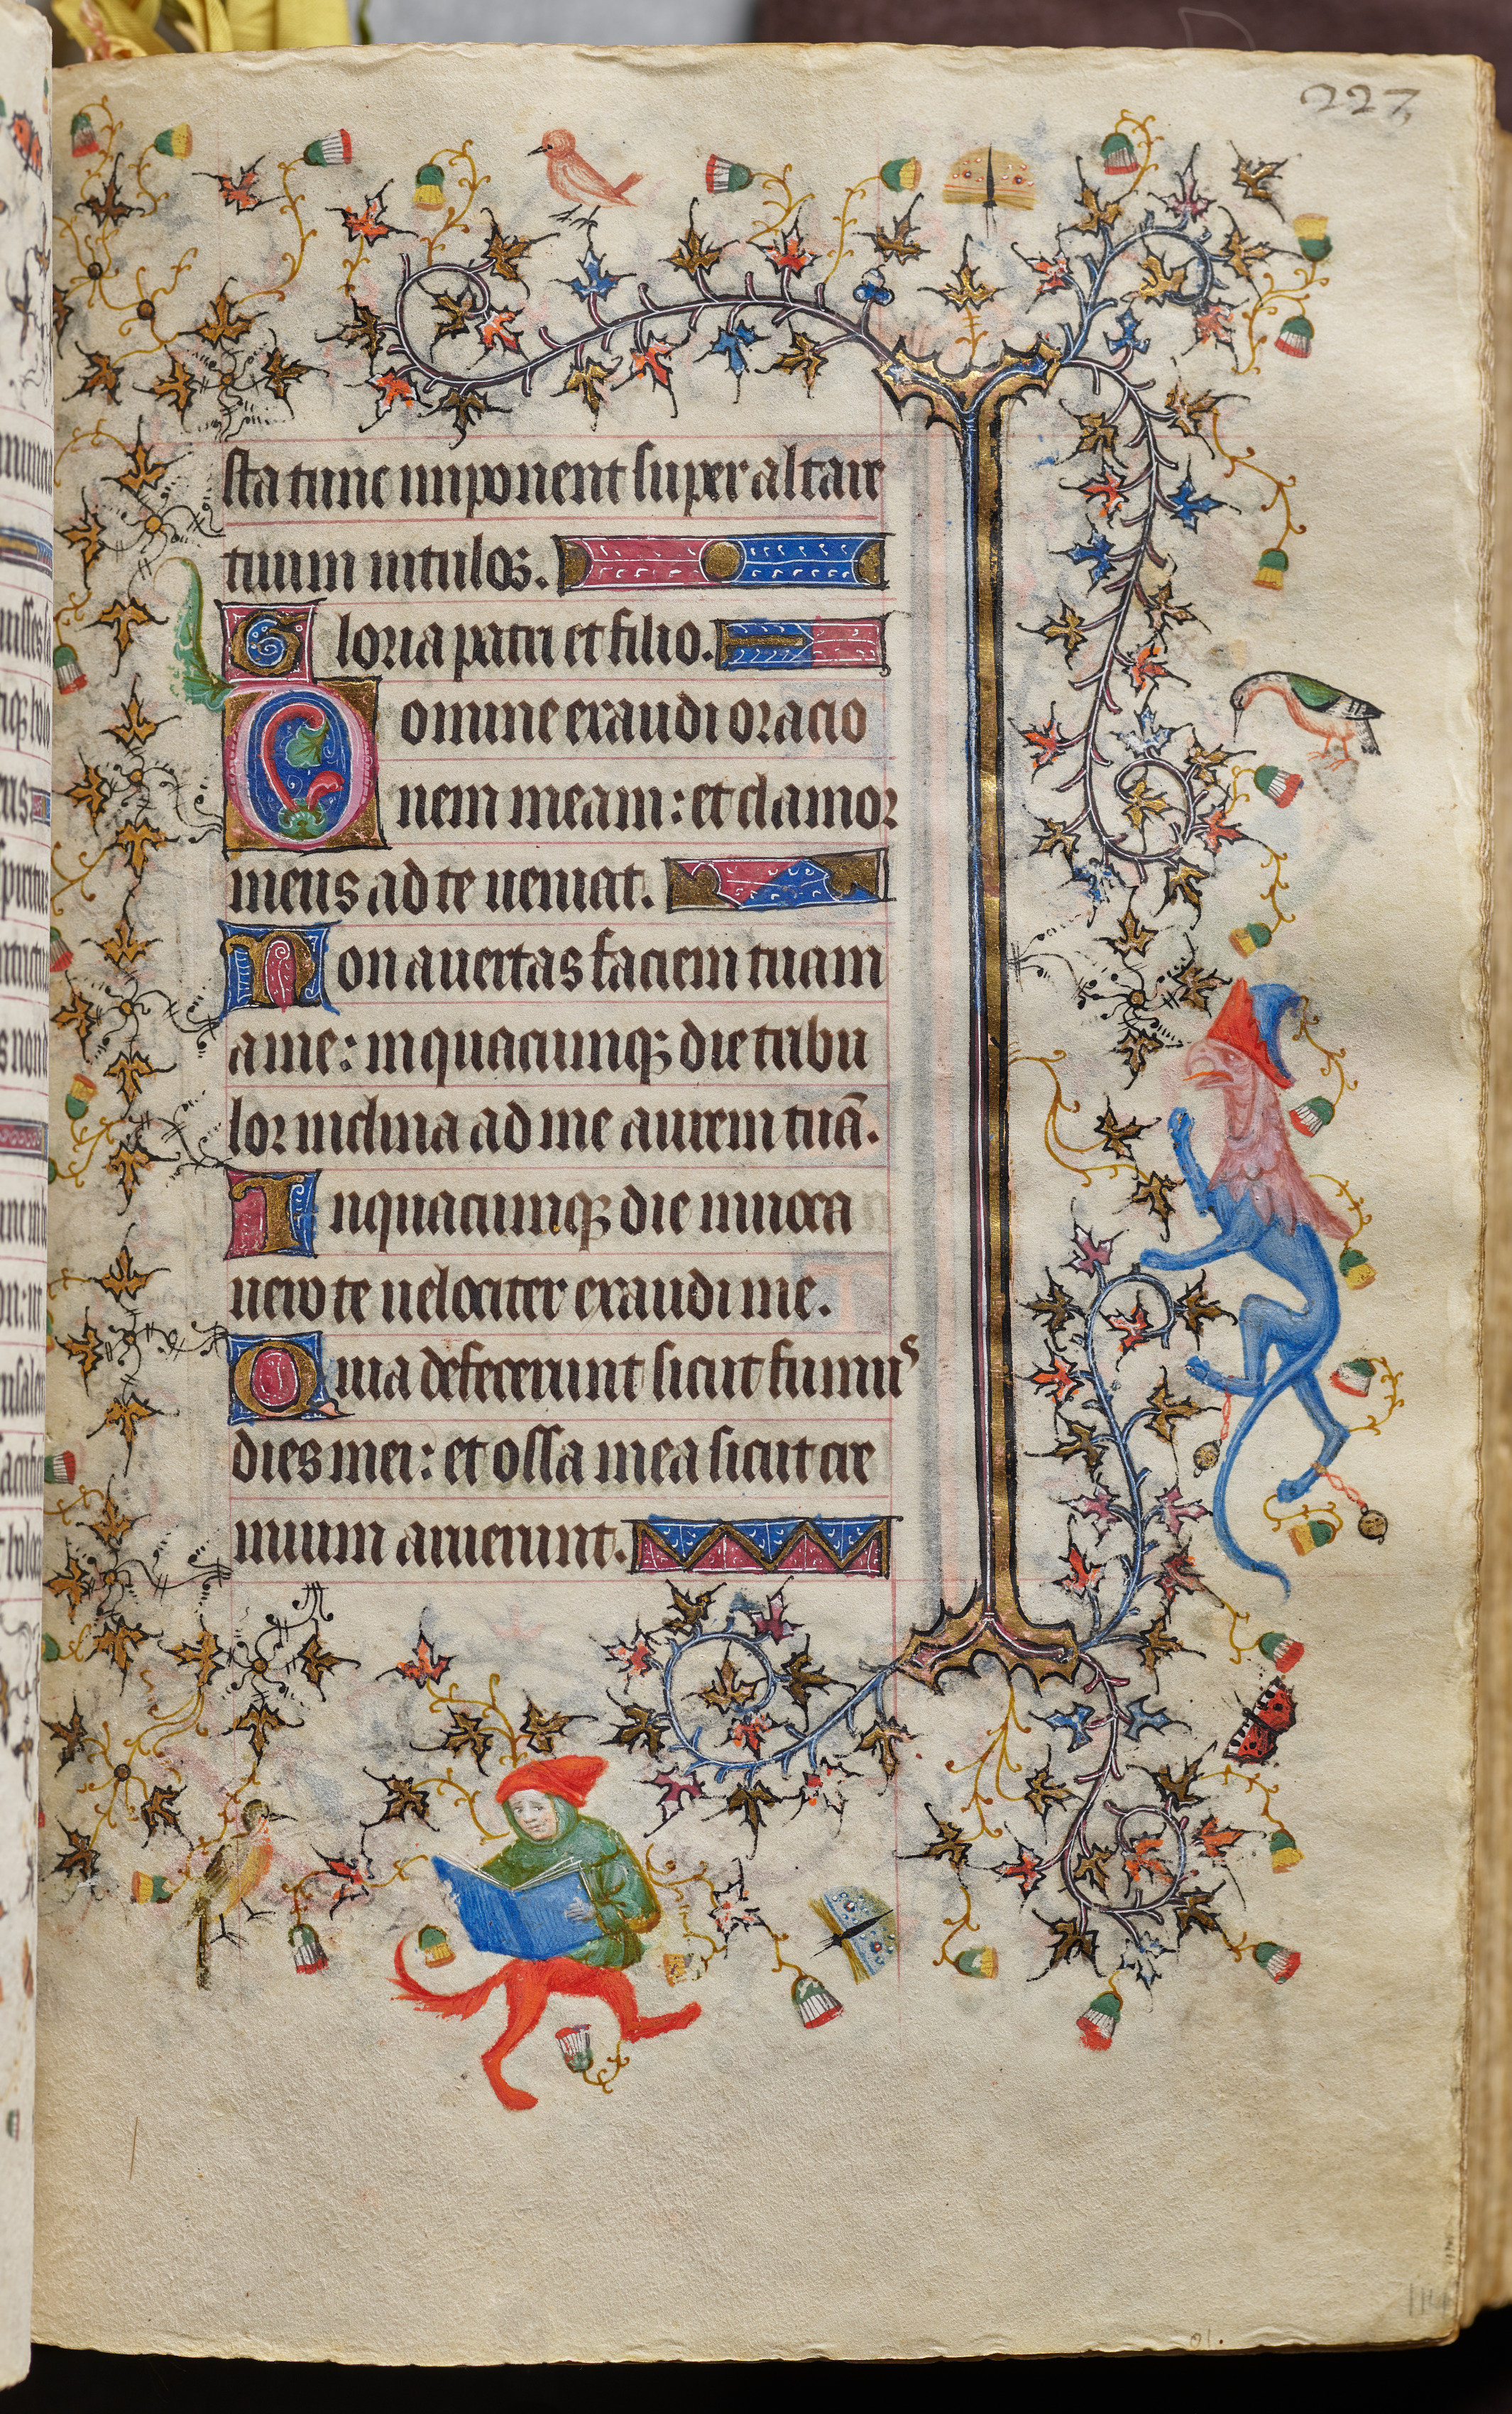 227
sta tunc imponent super altare
tuum uitulos.
Gloria patri et filio.
Domine exaudi oracio
nem meam: et clamor
meus ad te ueniat.
Non auertas faciem tuam
a me: in quacunqꝫ die tribu
lor inclina ad me aurem tuã.
In quacunqꝫ die inuoca
uero te uelociter exaudi me.
Quia defecerunt sicut fumus
dies mei: et ossa mea sicut cre
mium aruerunt.
114